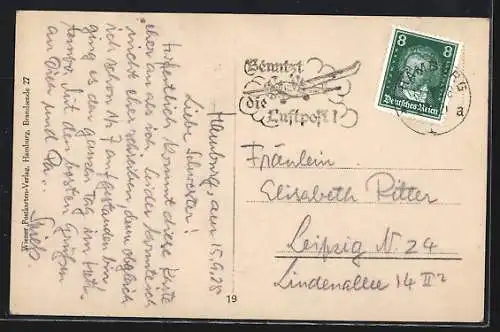 Hamburg, am 15.9.28
Liebe Schwester!
Hoffentlich kommt diese Karte
eher an als ich. Leider konnte ich
nicht eher schreiben, denn obgleich
ich schon ½7 aufgestanden bin,
ging es den ganzen Tag im
Tempo. Mit den besten Grüßen
an Dich und
Wiener Postkarten-Verlag, Hamburg, Brandsende 27
19
Benutzt
die
Luftpost!
8 8
Deutsches Reich
a
Fräulein
Elisabeth Ritter
Leipzig N. 24
Lindenallee 14 II